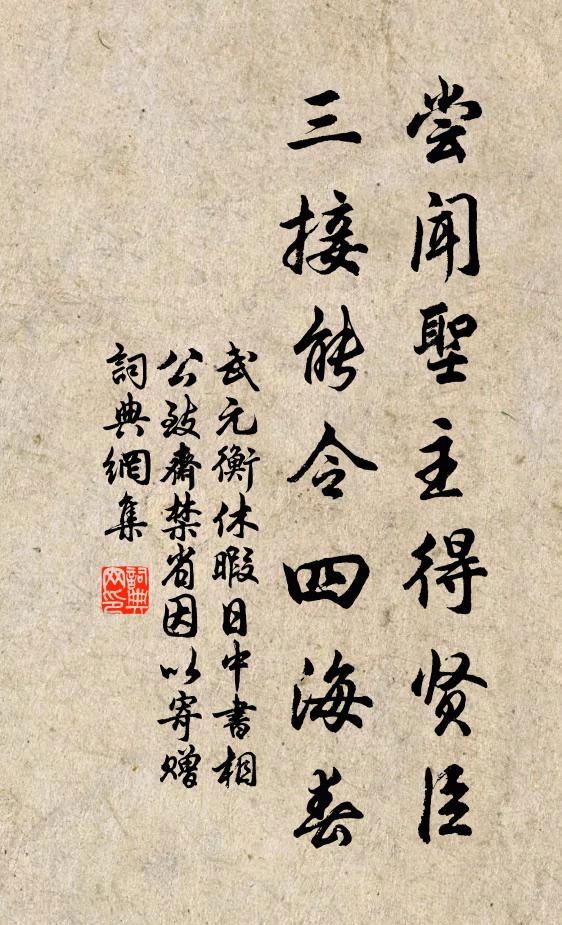 尝闻聖主得贤臣
三接能令四海春
武元衡休暇日中書相
公致齋禁省因以寄贈
詞典網集
詞典
网印